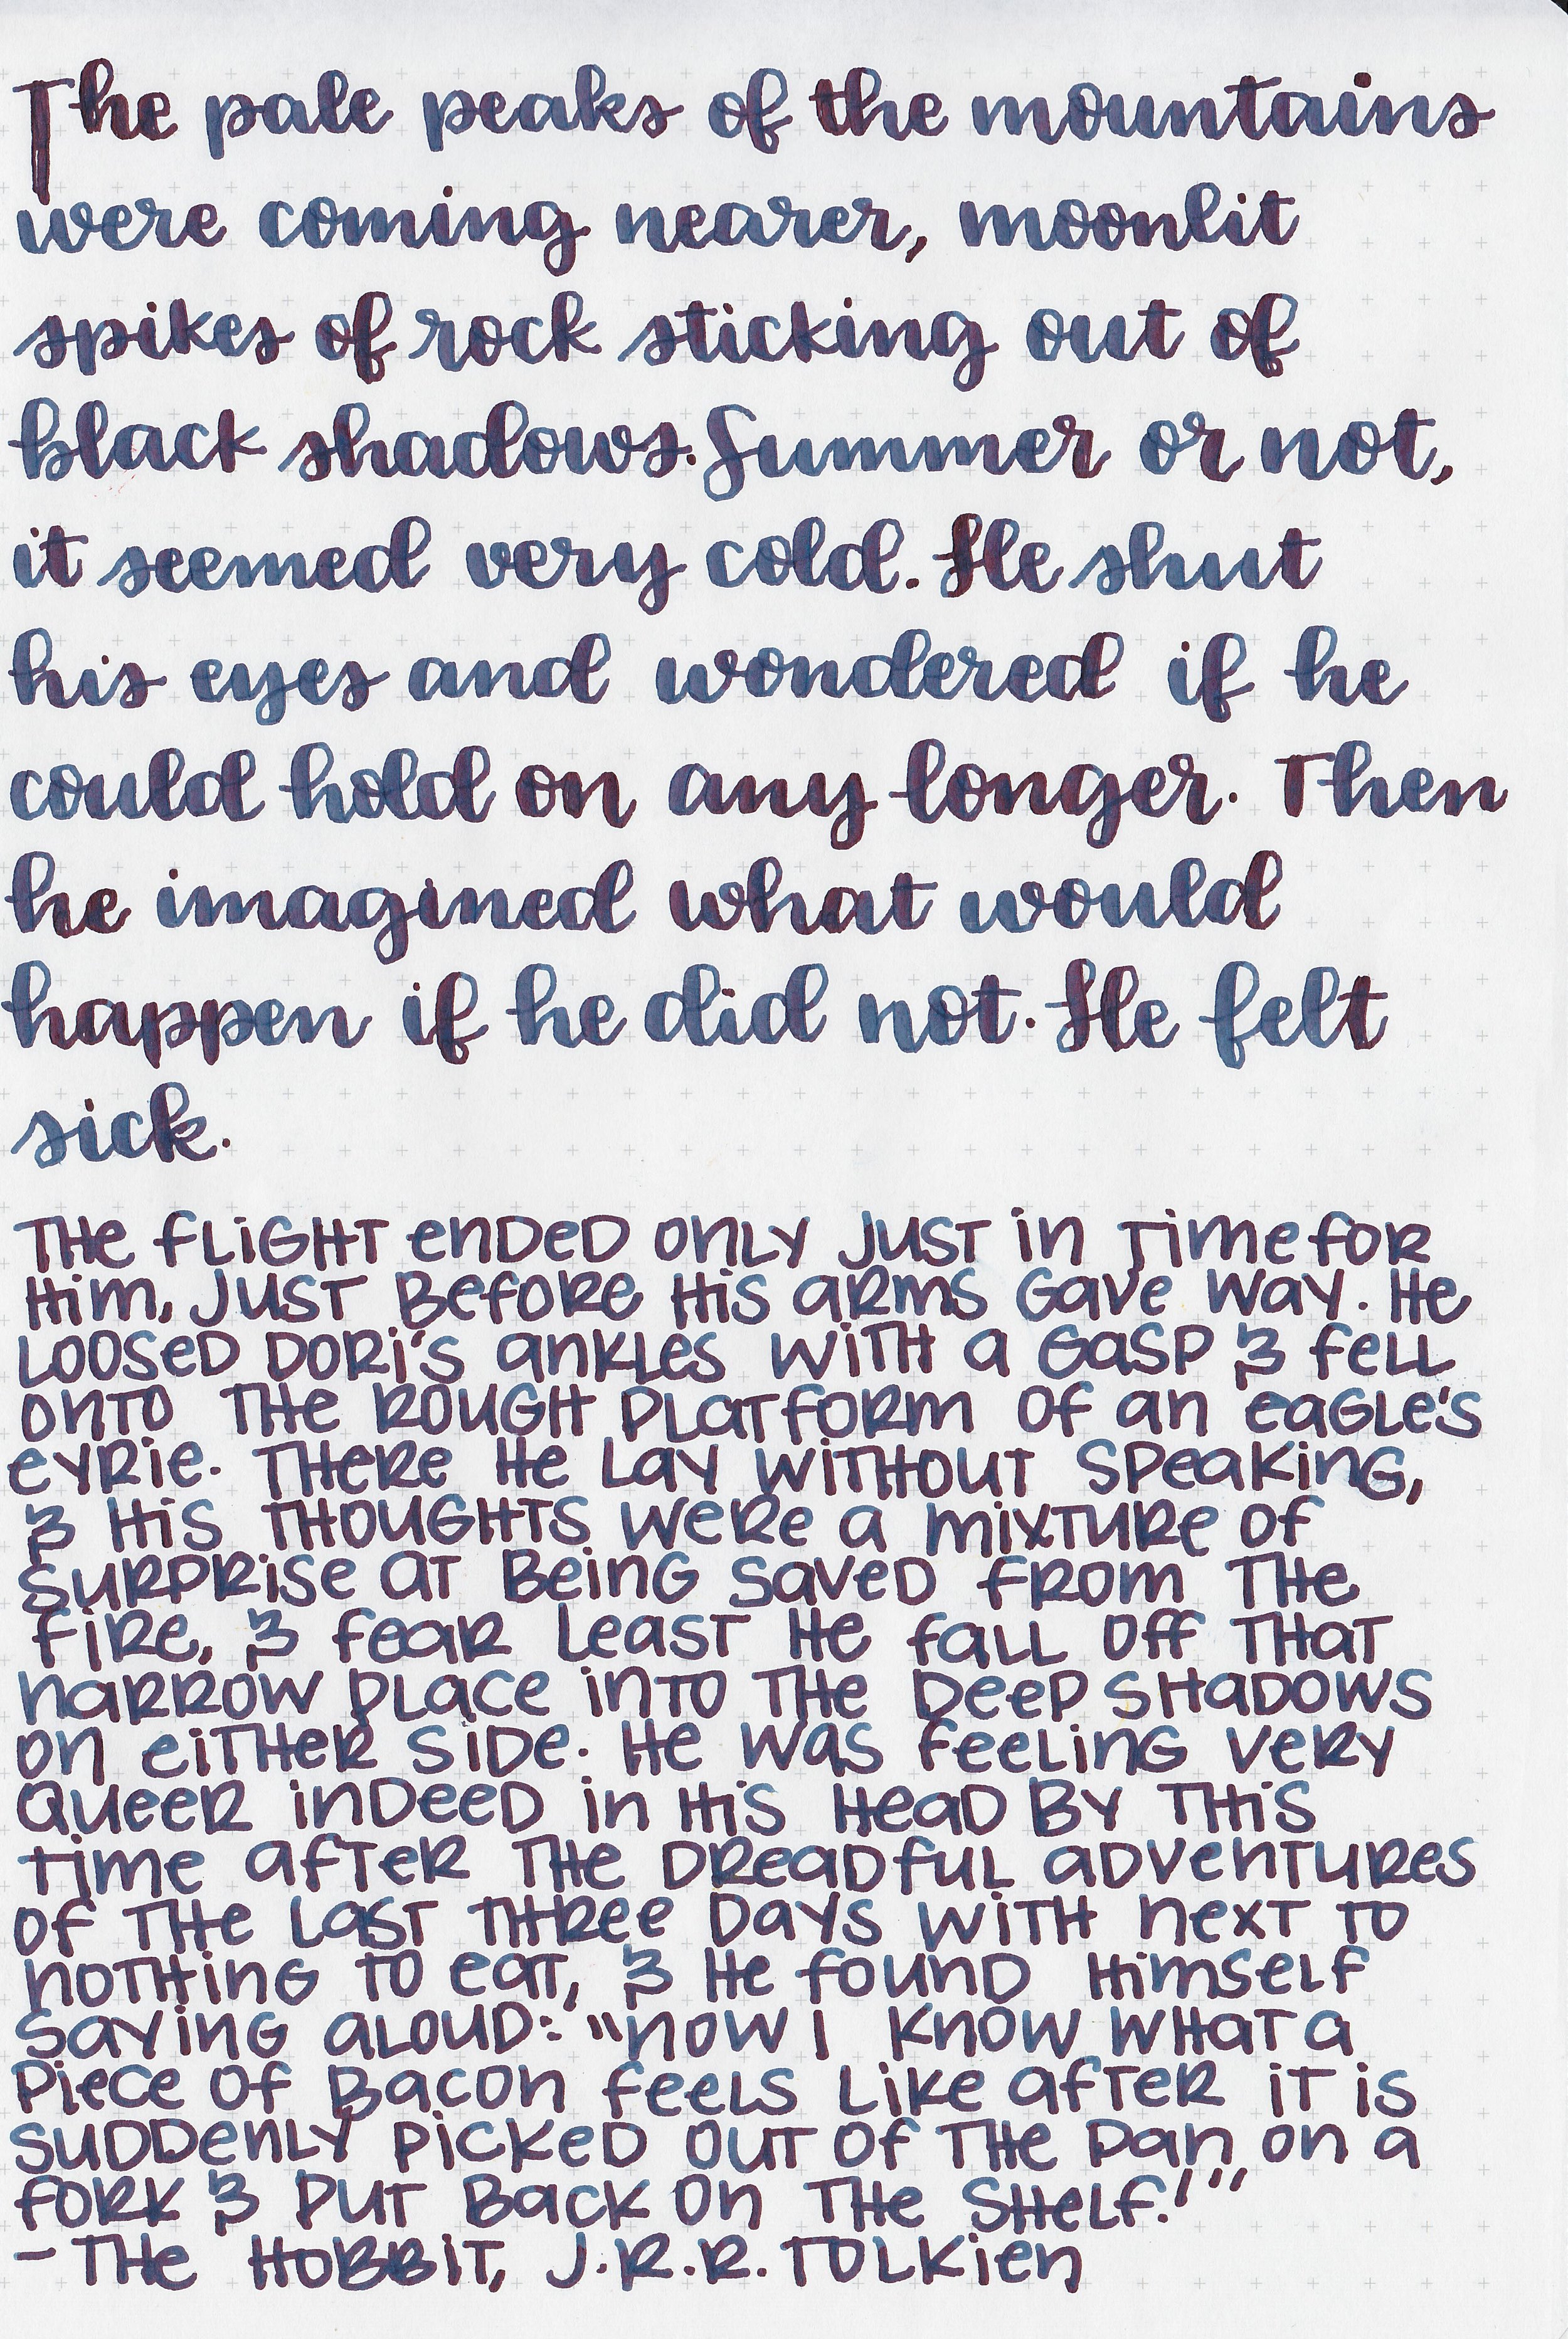 The pale peaks of the mountains
were coming nearer, moonlit
spikes of rock sticking out of
black shadows. Summer or not,
it seemed very cold. He shut
his eyes and wondered if he
could hold on any longer. Then
he imagined what would
happen if he did not. He felt
sick.
The flight ended only just in time for
him, just before his arms gave way. He
loosed Dori's ankles with a gasp & fell
onto the rough platform of an eagle's
eyrie. There he lay without speaking,
& his thoughts were a mixture of
surprise at being saved from the
fire, & fear least he fall off that
narrow place into the deep shadows
on either side. He was feeling very
queer indeed in his head by this
time after the dreadful adventures
of the last three days with next to
nothing to eat, & he found himself
saying aloud: "Now I know what a
piece of bacon feels like after it is
suddenly picked out of the pan on a
fork & put back on the shelf!"
- The Hobbit, J.R.R. Tolkien